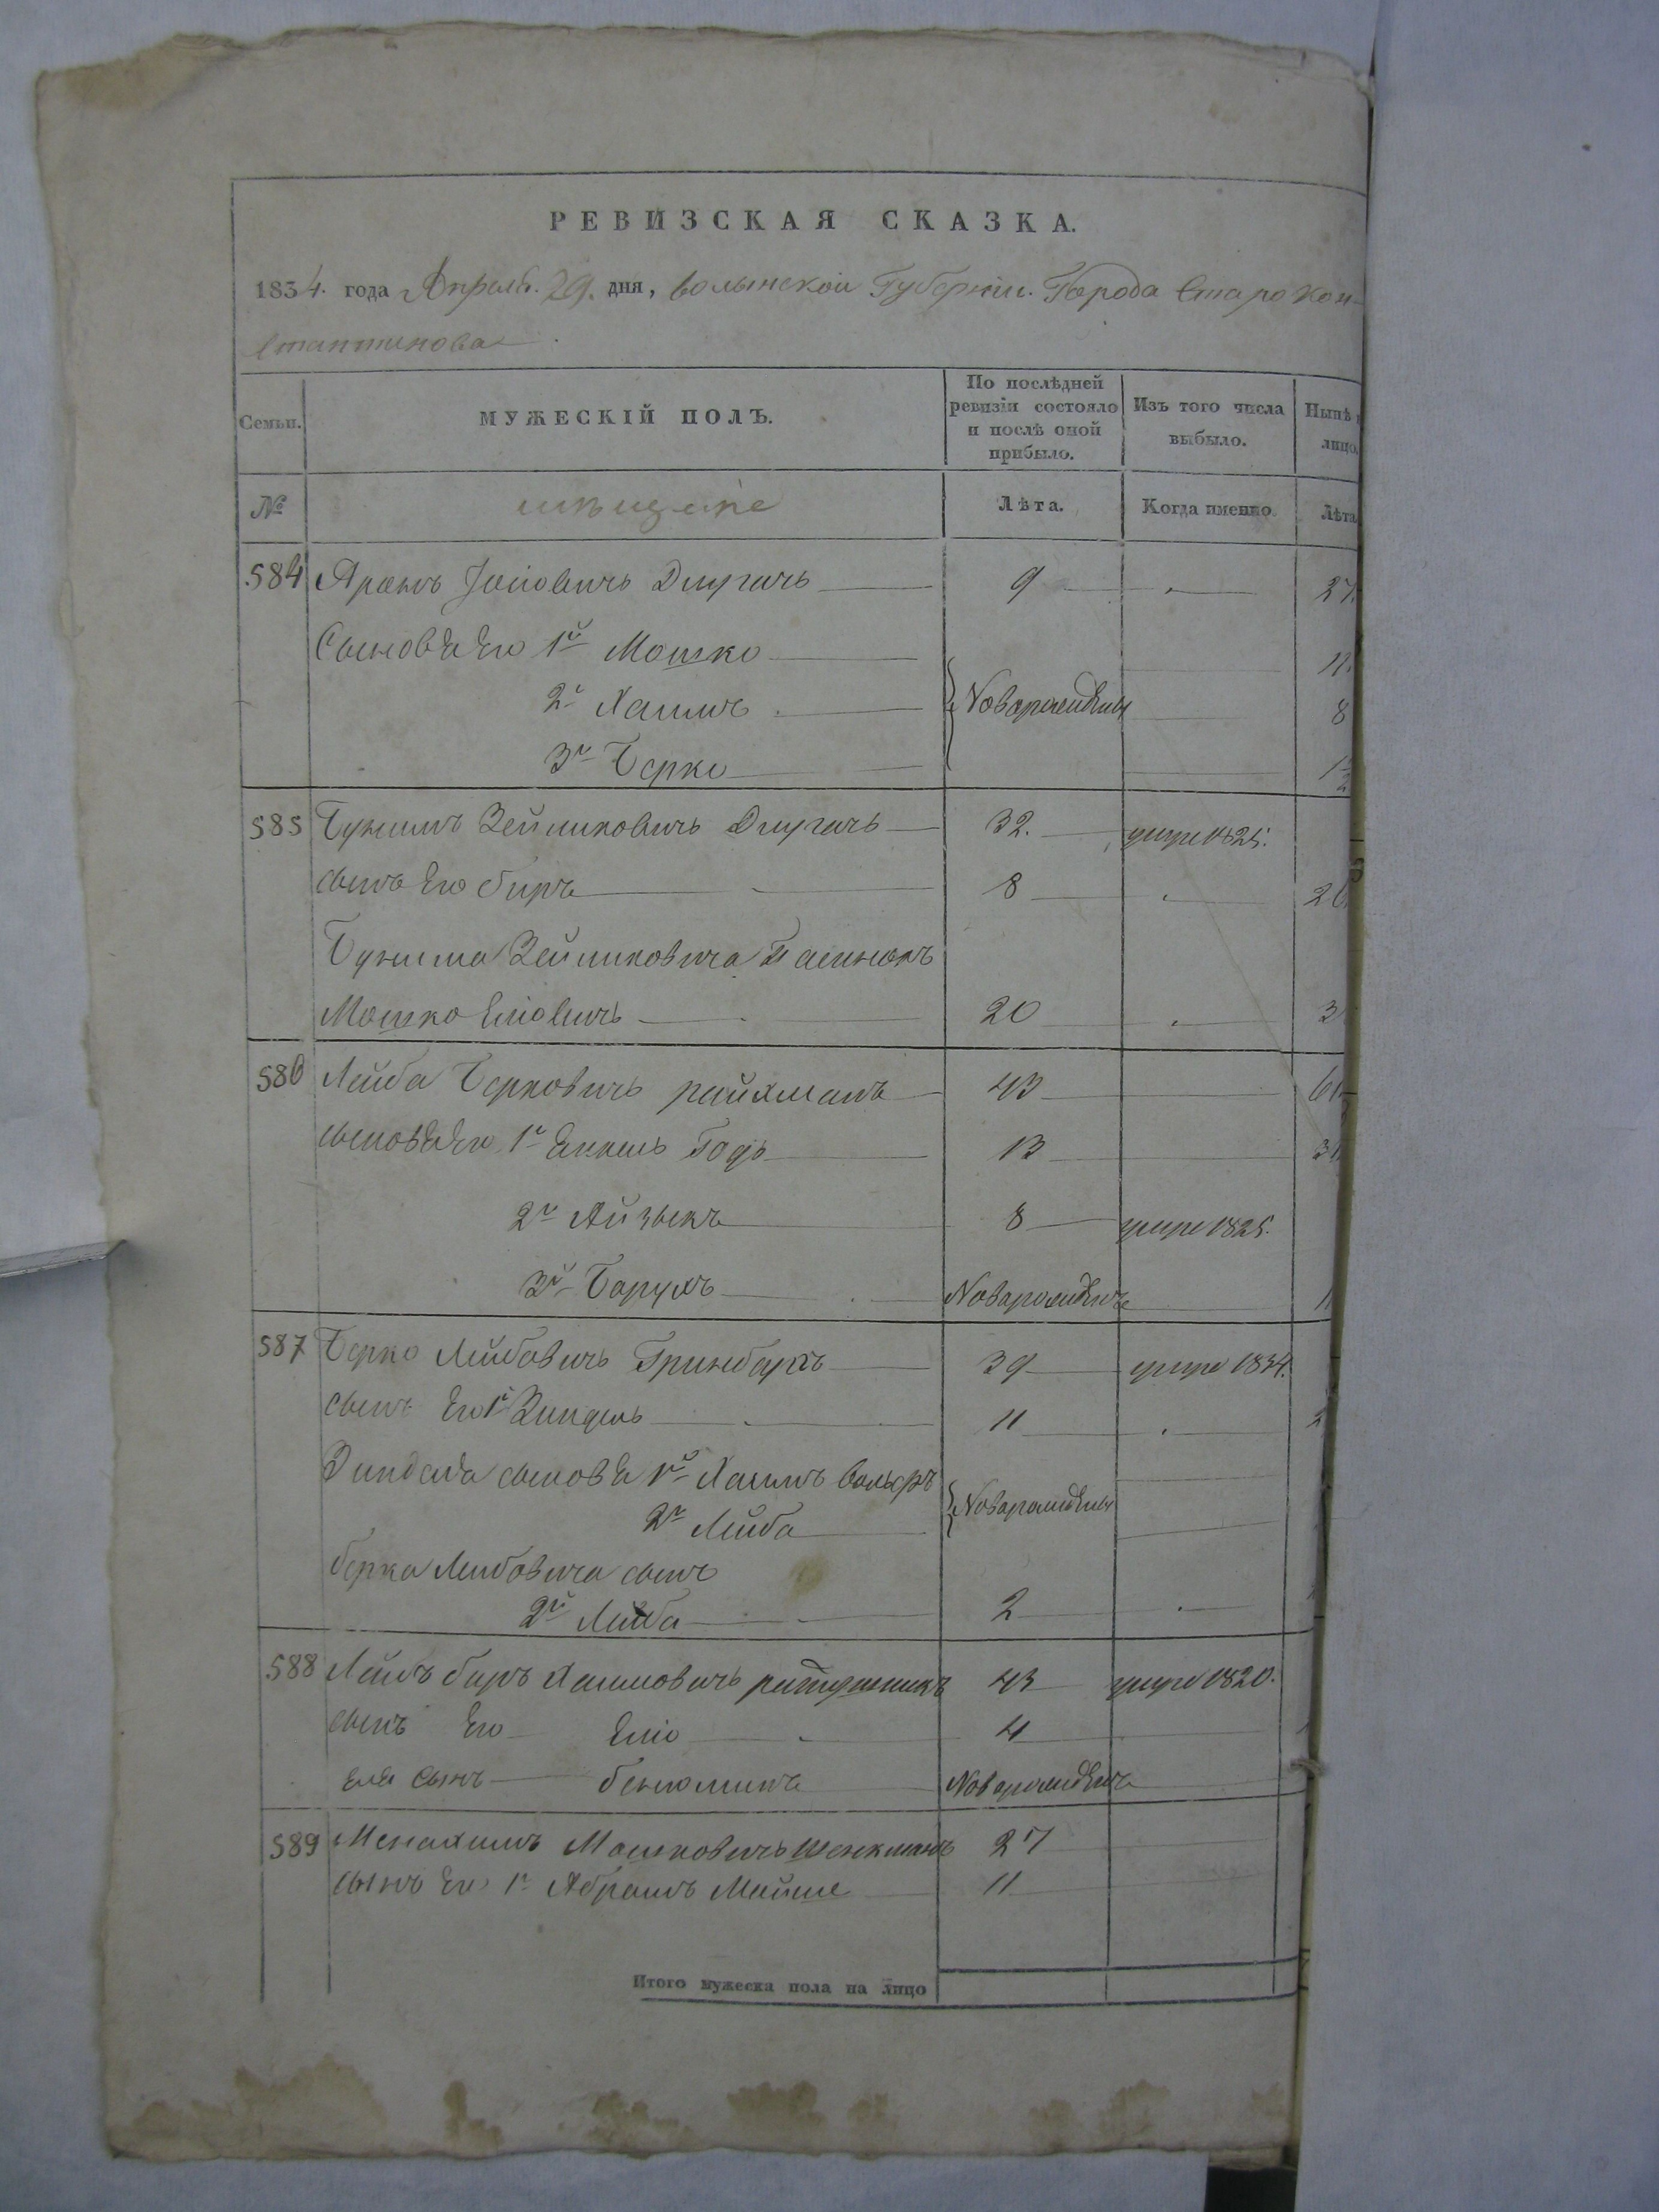 РЕВИЗСКАЯ СКАЗКА.
1834. года Апреля. 29. дня, Волынской Губернии. Города Старокон-
стантинова
Семьи. МУЖЕСКІЙ ПОЛЪ. По послѣдней ревизіи состояло и послѣ оной прибыло. Изъ того числа выбыло. Нынѣ лицо.
№ мѣщане Лѣта. Когда именно Лѣта
584 Аронъ Длугачъ 9 27.
Сыновья Его 1й Мошко 11.
2й Хаимъ Новорожденны 8
3й Берко
585 Бунимъ Зейликовичъ Длугачъ 32. умре 1825.
сынъ Его Беръ 8 26
Бунима Зейликовича Пасынокъ
Мошко Еліовичъ 20 3
586 Лейба Берковичъ райхманъ 43 61.
сыновья Его 1й Янкель 13 31
2й Айзыкъ 8 умре 1825.
3й Барухъ Новорожденъ 1
587 Берко Лейбовичъ Гринбаргъ 39 умре 1834.
сынъ Его 1й Зиндель 11 2
Зинделя сыновья 1й Хаимъ Вольфъ
2й Лейба Новорожденны
берка Лейбовича сынъ
2й Лейба 2
588 беръ Хаимовичъ 43 умре 1820.
сынъ Его Еліо 4
Еля Сынъ бенюминъ Новорожденъ
589 Менахимъ Мошковичъ Шенкманъ 27
сынъ Его 1й Абрамъ Мойше 11
Итого мужеска пола на лицо